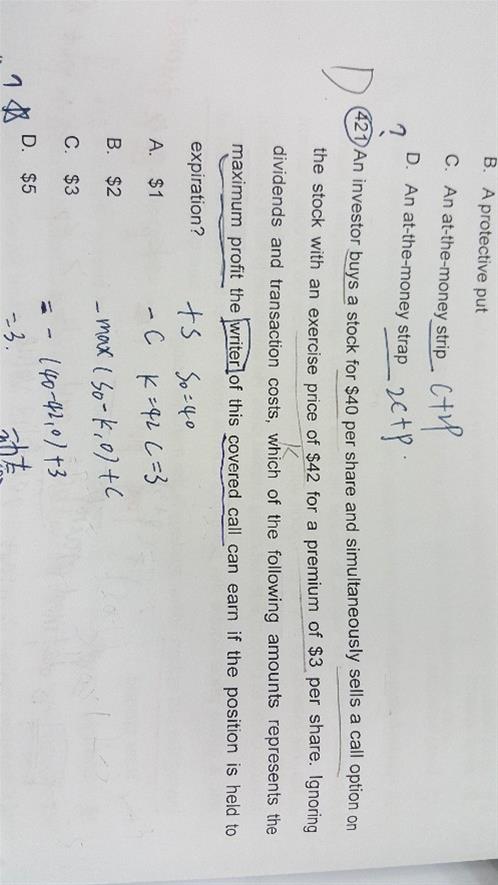 B. A protective put
C. An at-the-money strip C+2P
? D. An at-the-money strap 2C+P.
D 421 An investor buys a stock for $40 per share and simultaneously sells a call option on
the stock with an exercise price of $42 for a premium of $3 per share. Ignoring
K
dividends and transaction costs, which of the following amounts represents the
maximum profit the writer of this covered call can earn if the position is held to
expiration?
+S S0=40
A. $1
-C K=42 C=3
B. $2
-max(S0-K,0)+C
C. $3
= -(40-42,0)+3
D. $5
=3.